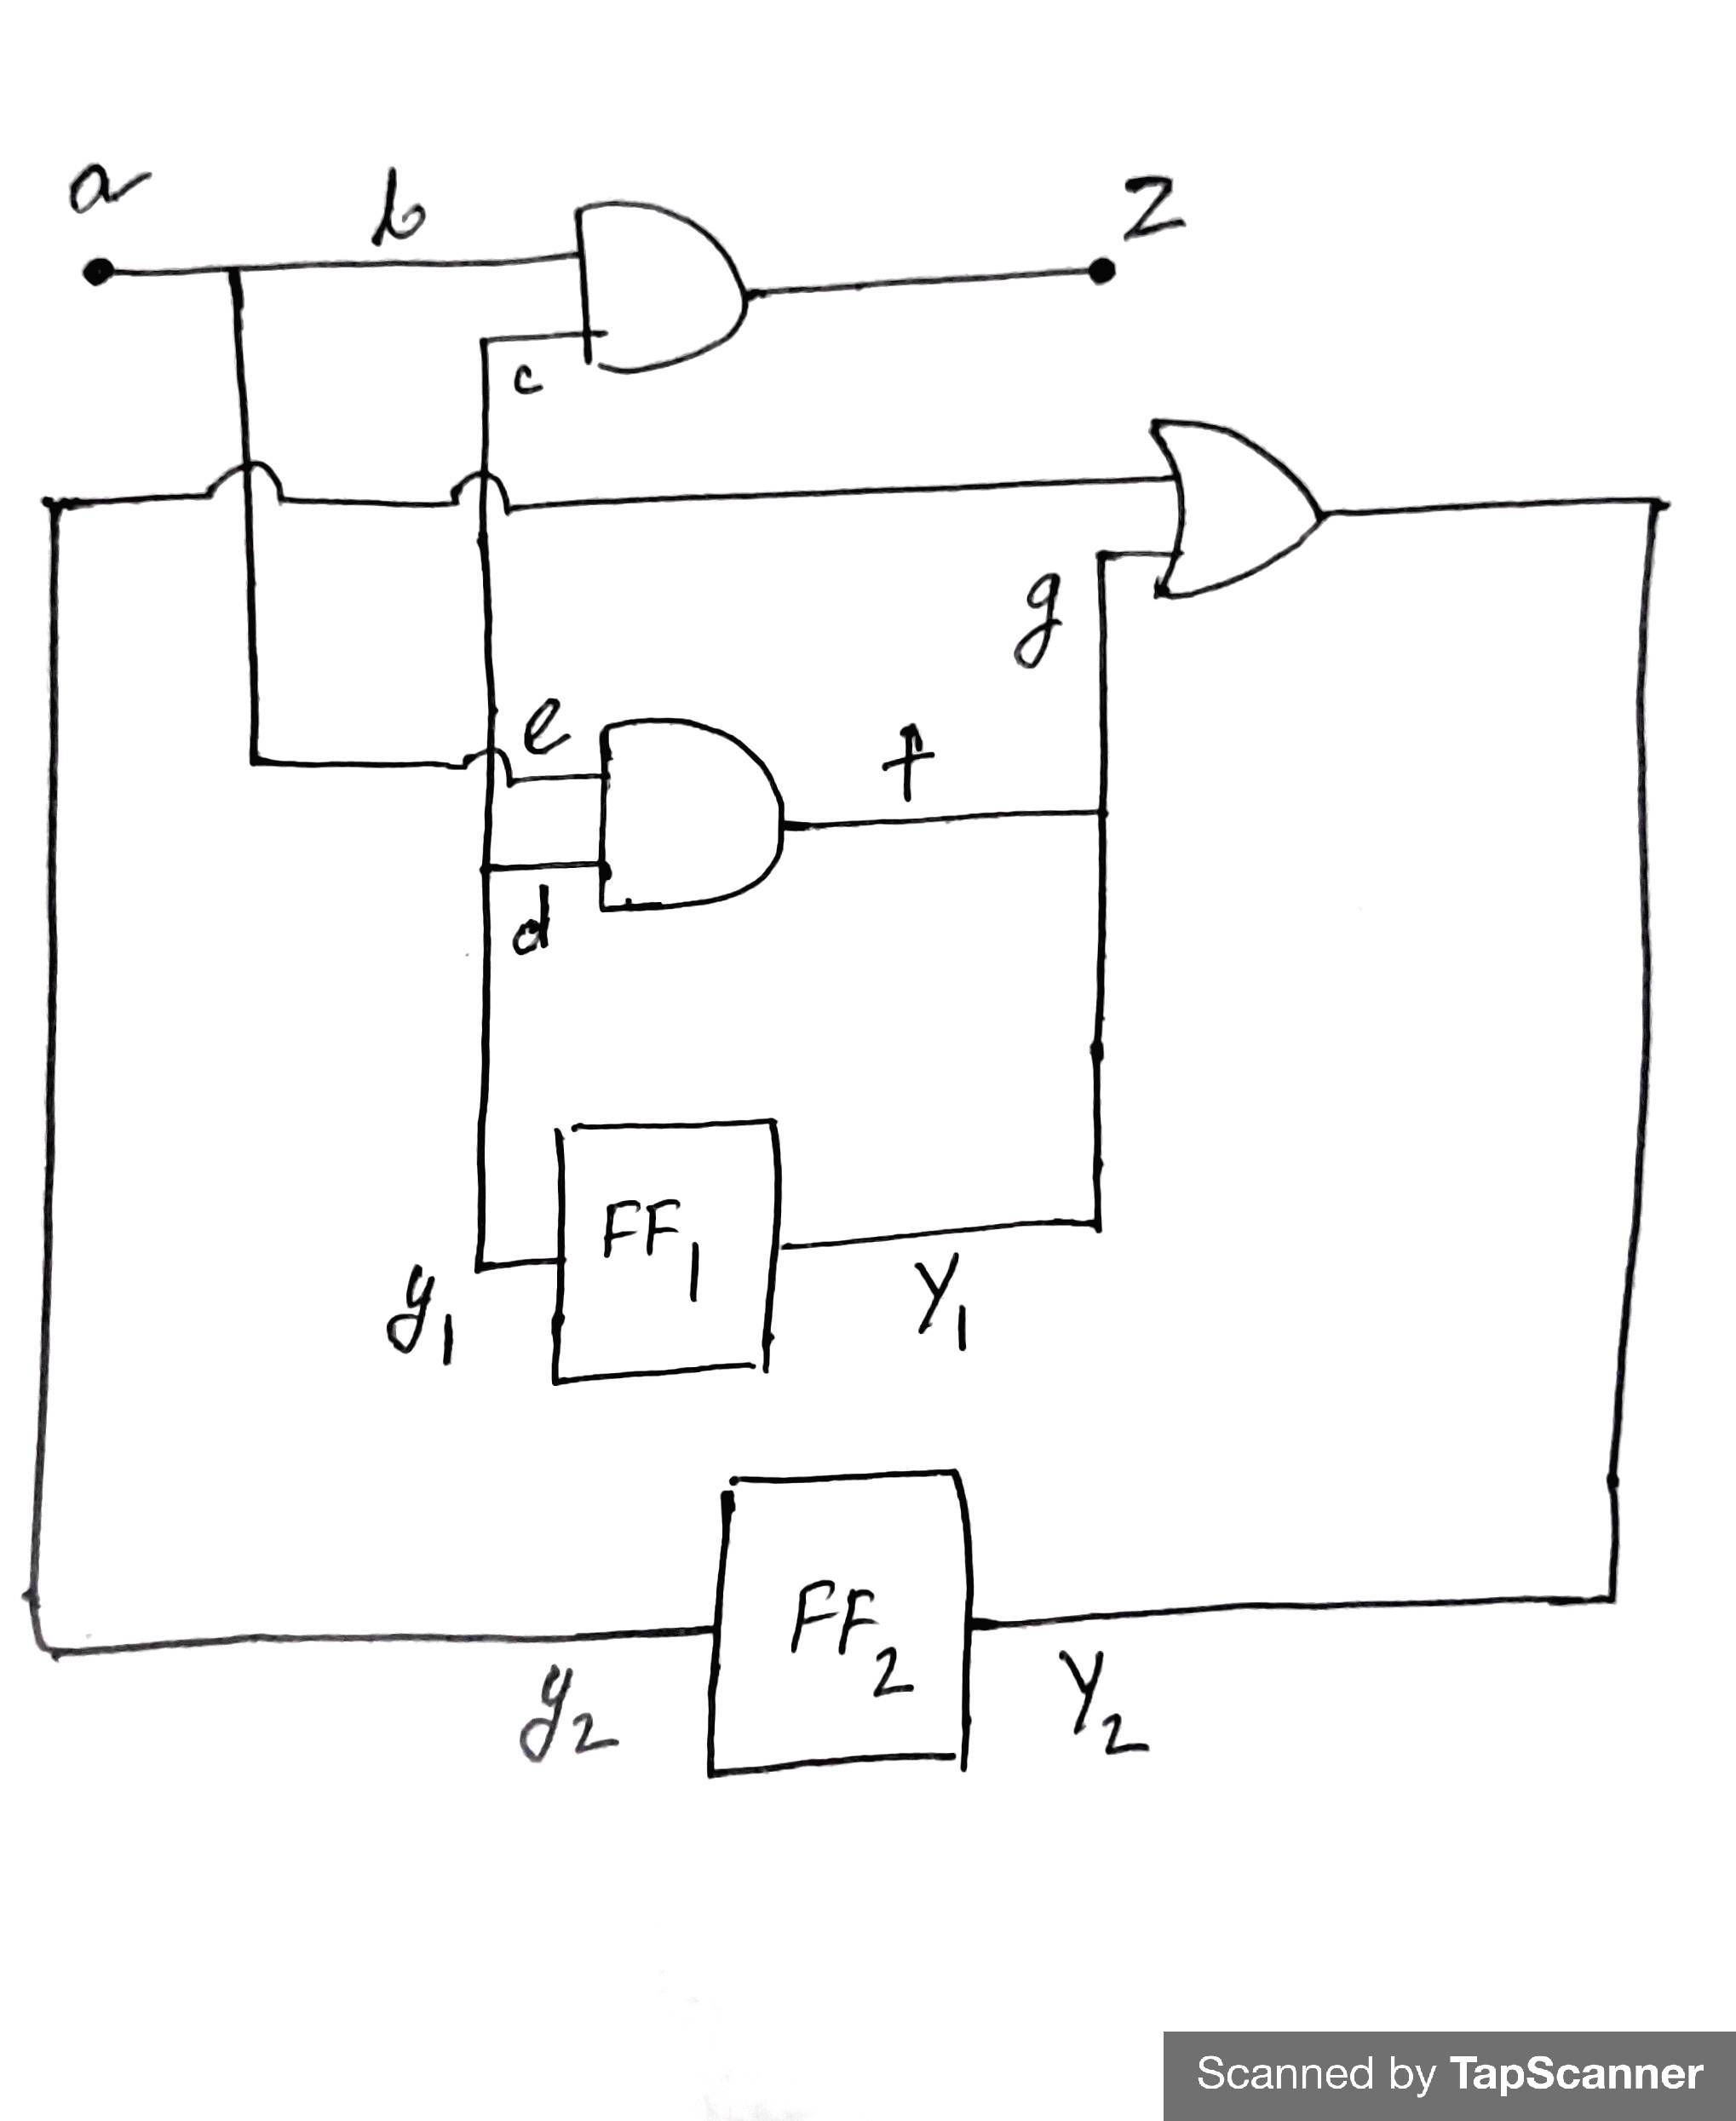 a
b
Z
c
g
e
f
d
FF1
y1
Y1
FF2
y2
Y2
Scanned by TapScanner